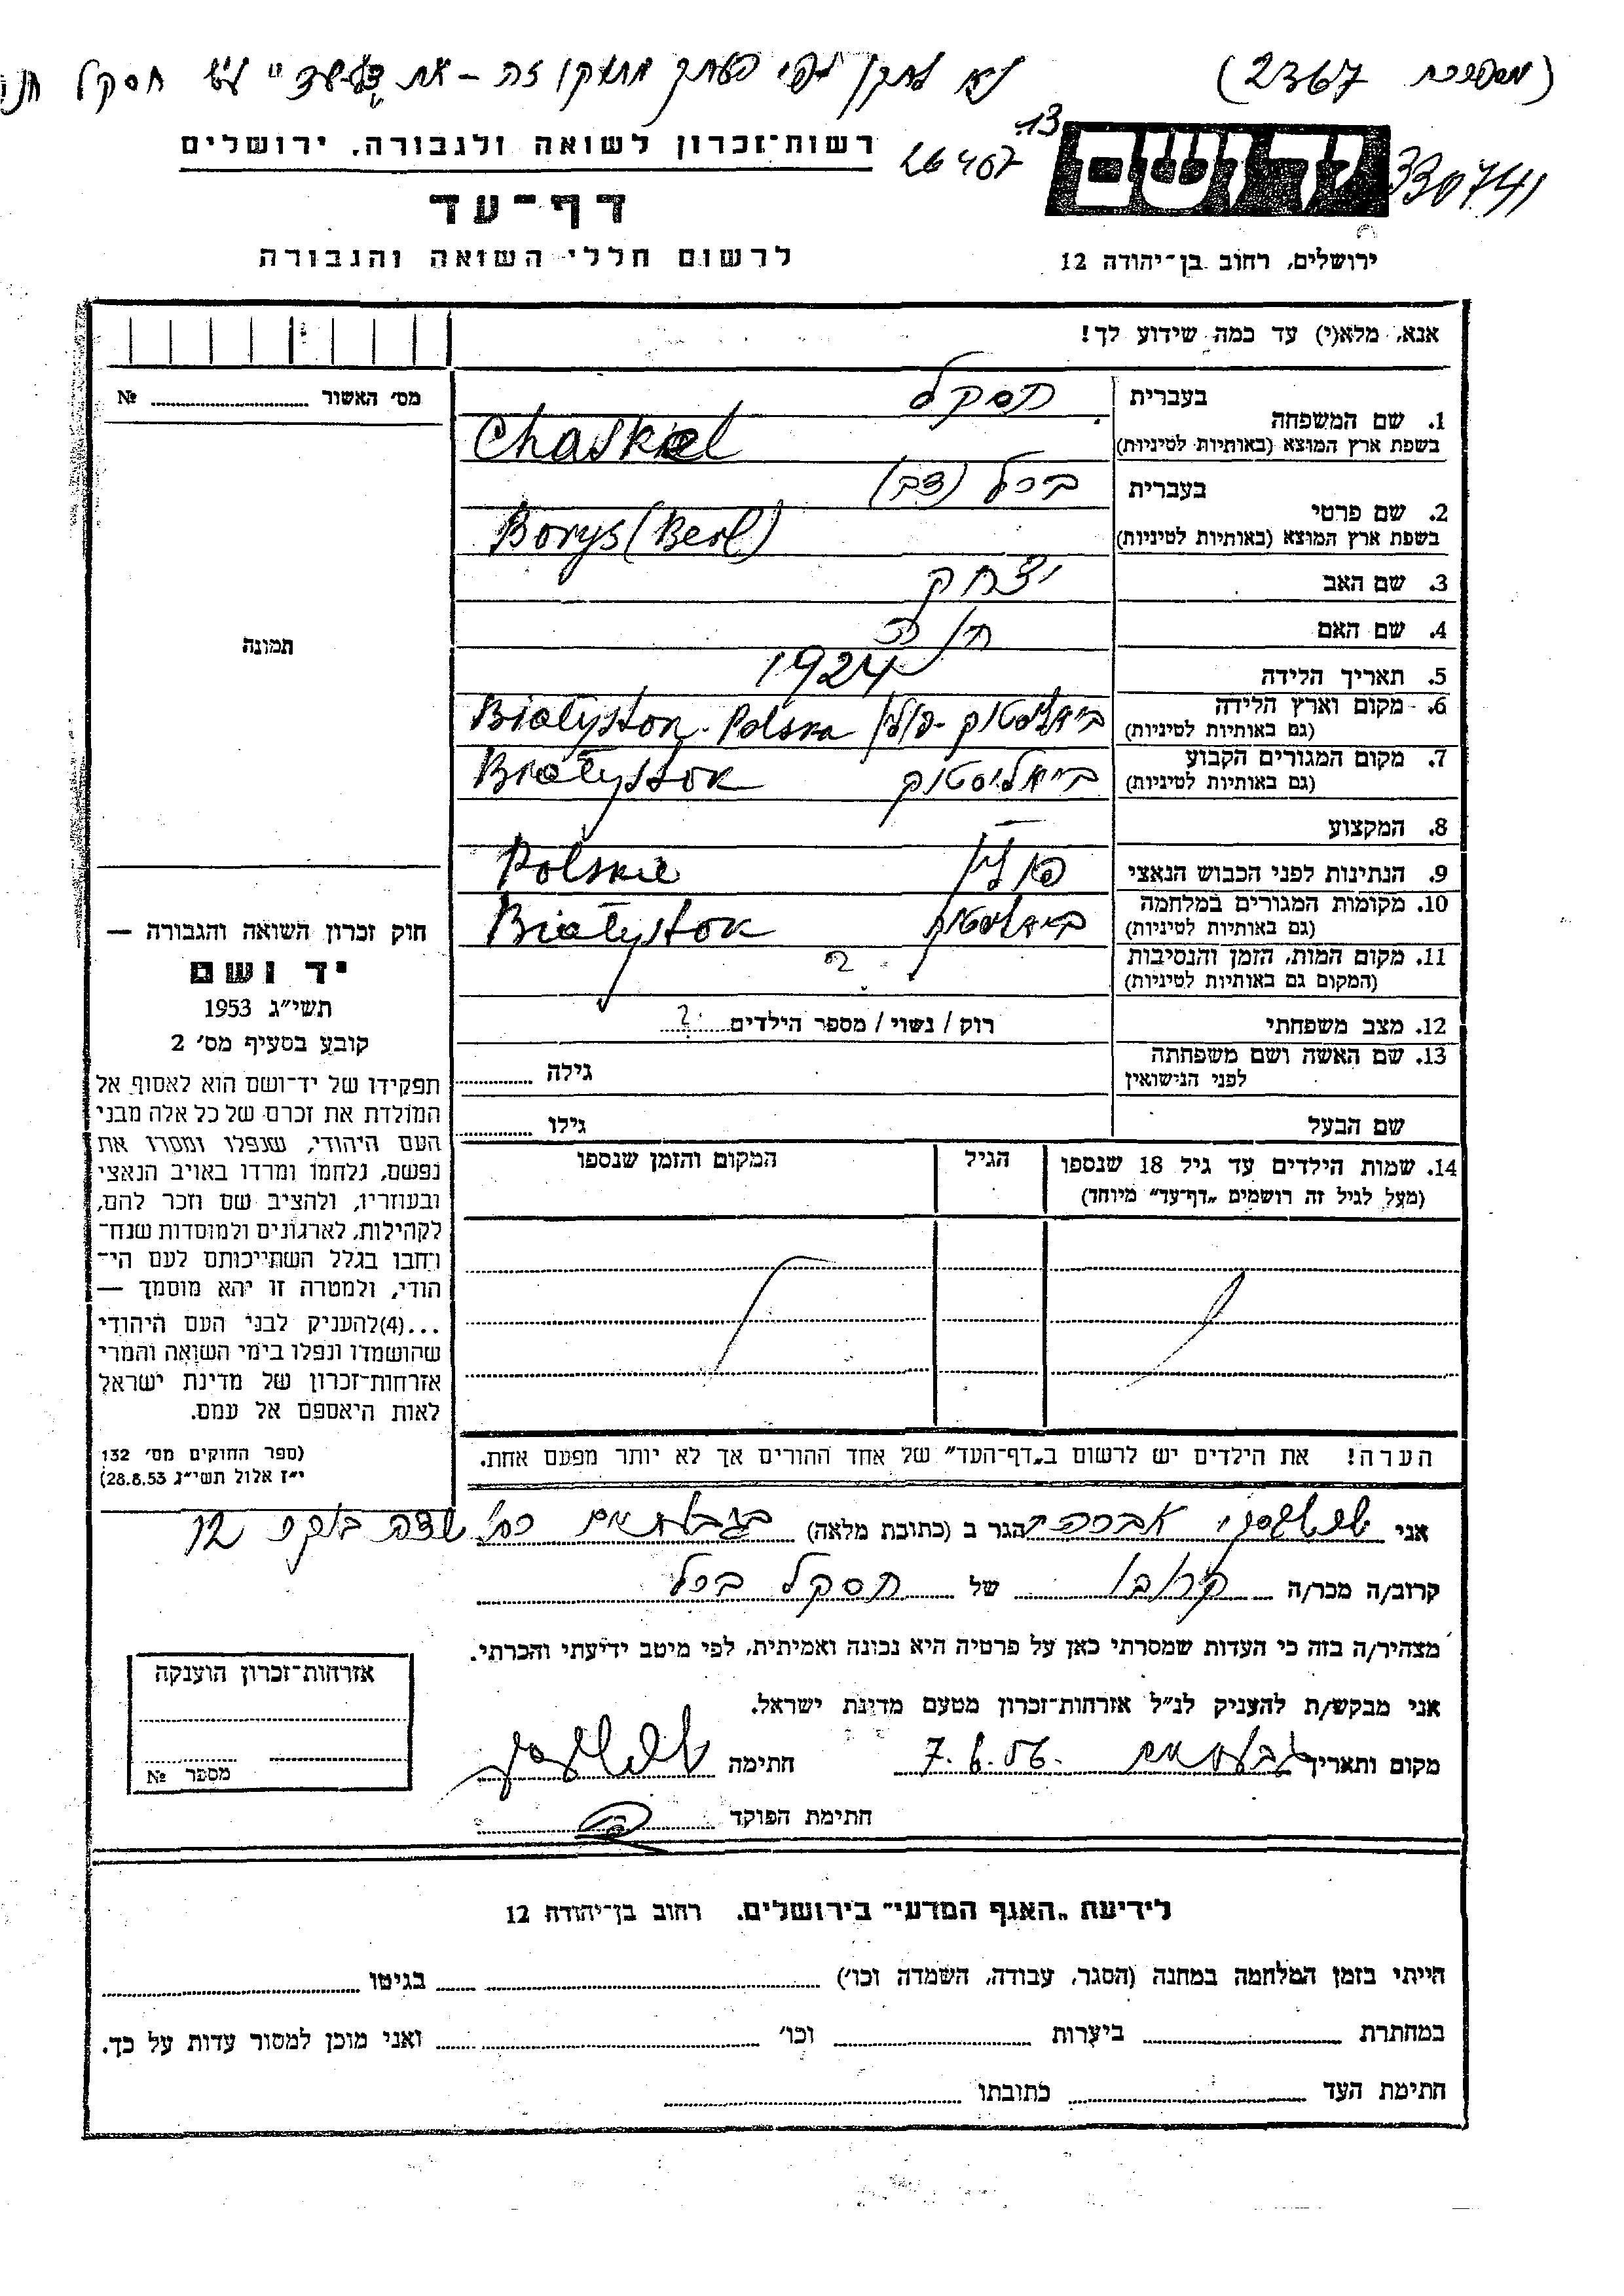 (2367
לא
חסקל
13.
26407
330741
יד ושם
רשות־זכרון לשואה ולגבורה, ירושלים
דף־עד
לרשום חללי השואה והגבורה
ירושלים, רחוב בן־יהודה 12
אנא, מלא(י) עד כמה שידוע לך!
מס׳ האשור № 
תמונה
1. שם המשפחה
בעברית
חסקל
בשפת ארץ המוצא (באותיות לטיניות)
Chaskel
2. שם פרטי
בעברית
ברל (דב)
בשפת ארץ המוצא (באותיות לטיניות)
Borys (Berl)
3. שם האב יצחק
4. שם האם חנה
5. תאריך הלידה 1924
6. מקום וארץ הלידה ביאליסטוק - פולין Białystok - Polska
(גם באותיות לטיניות)
7. מקום המגורים הקבוע ביאליסטוק Białystok
(גם באותיות לטיניות)
8. המקצוע —
9. הנתינות לפני הכבוש הנאצי פולין Polska
10. מקומות המגורים במלחמה ביאליסטוק Białystok
(גם באותיות לטיניות)
11. מקום המות, הזמן והנסיבות ?
(המקום גם באותיות לטיניות)
12. מצב משפחתי רוק / נשוי / מספר הילדים ?
13. שם האשה ושם משפחתה
לפני הנישואין
גילה
שם הבעל גילו
14. שמות הילדים עד גיל 18 שנספו הגיל המקום והזמן שנספו
(מעל לגיל זה רושמים „דף־עד” מיוחד)
הערה! את הילדים יש לרשום ב„דף־העד” של אחד ההורים אך לא יותר מפעם אחת.
חוק זכרון השואה והגבורה —
יד ושם
תשי״ג 1953
קובע בסעיף מס׳ 2
תפקידו של יד־ושם הוא לאסוף אל
המולדת את זכרם של כל אלה מבני
העם היהודי, שנפלו ומסרו את
נפשם, נלחמו ומרדו באויב הנאצי
ובעוזריו, ולהציב שם וזכר להם,
לקהילות, לארגונים ולמוסדות שנח־
רבו בגלל השתייכותם לעם הי־
הודי, ולמטרה זו יהא מוסמך —
...(4)להעניק לבני העם היהודי
שהושמדו ונפלו בימי השואה והמרי
אזרחות־זכרון של מדינת ישראל
לאות היאספם אל עמם.
(ספר החוקים מס׳ 132
י״ז אלול תשי״ג 28.8.53)
אני הגר ב (כתובת מלאה) גבעתיים שדה בוקר 12
קרוב/ה מכר/ה קרובו של חסקל ברל
מצהיר/ה בזה כי העדות שמסרתי כאן על פרטיה היא נכונה ואמיתית, לפי מיטב ידיעתי והכרתי.
אני מבקש/ת להעניק לנ״ל אזרחות־זכרון מטעם מדינת ישראל.
מקום ותאריך גבעתיים 7.6.56. חתימה
חתימת הפוקד
אזרחות־זכרון הוענקה
מספר №
לידיעת „האגף המדעי” בירושלים. רחוב בן־יהודה 12
הייתי בזמן המלחמה במחנה (הסגר, עבודה, השמדה וכו׳) בגיטו
במחתרת ביערות וכו׳ ואני מוכן למסור עדות על כך.
חתימת העד כתובתו